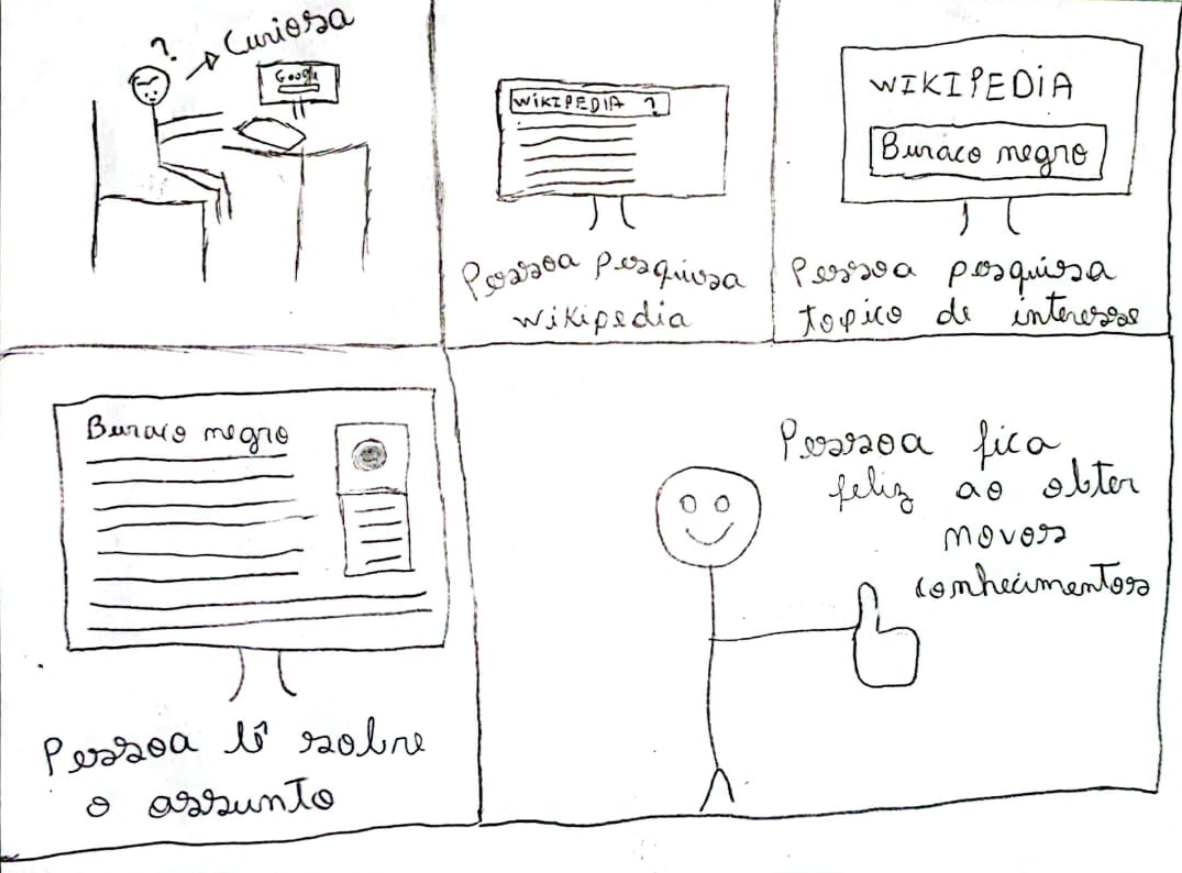 ?
Curiosa
Google
WIKIPEDIA ?
Pessoa pesquisa
wikipedia
WIKIPEDIA
Buraco negro
Pessoa pesquisa
topico de interesse
Buraco negro
Pessoa lê sobre
o assunto
Pessoa fica
feliz ao obter
novos
conhecimentos